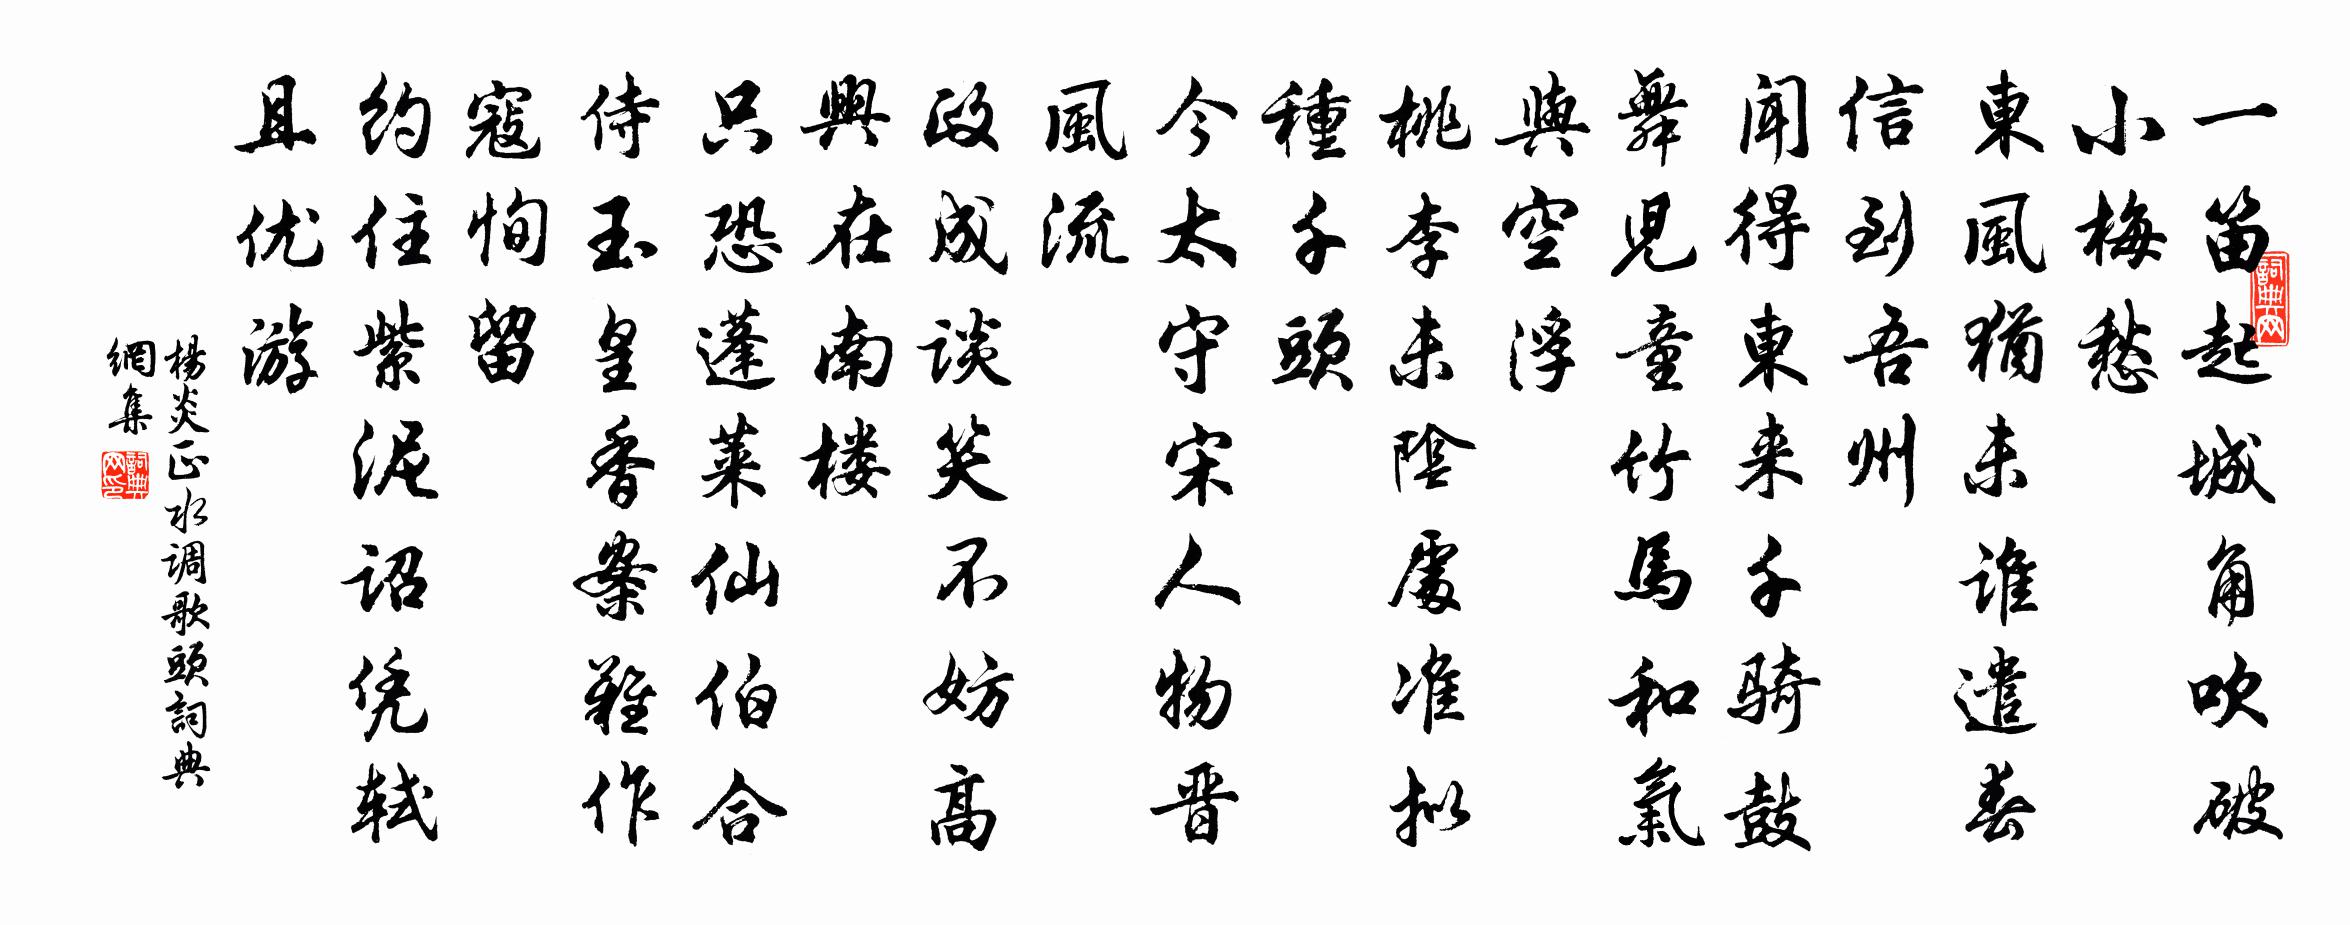 一笛起城角吹破
小梅愁
東風猶未誰遣春
信到吾州
闻得東来千骑鼓
舞兒童竹馬和氣
與空浮
桃李未陰處准拟
種千頭
今太守宋人物晋
風流
政成谈笑不妨高
興在南楼
只恐蓬莱仙伯合
侍玉皇香案難作
寇恂留
约住紫泥诏凭轼
且优游
楊炎正水调歌頭詞典
網集
詞典网
詞典网印